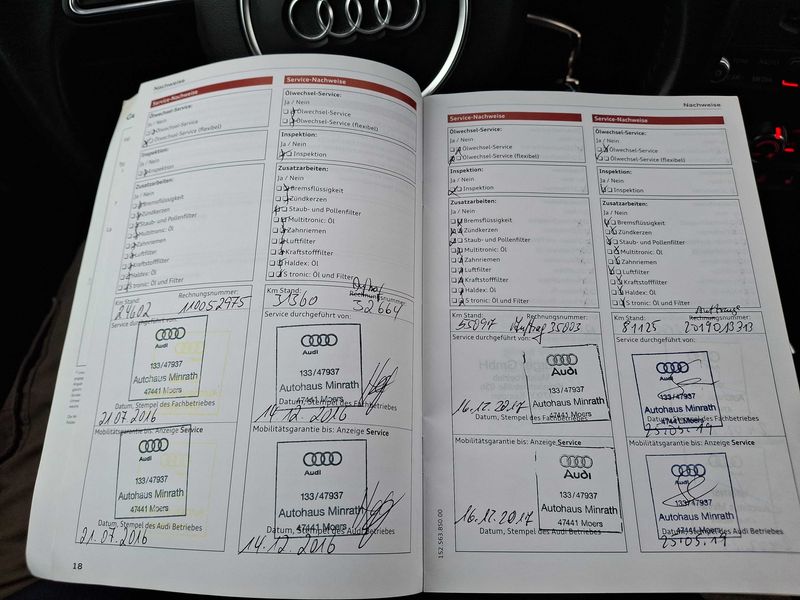 Nachweise
Service-Nachweise
Ölwechsel-Service:
Ja / Nein
Ölwechsel-Service
Ölwechsel-Service (flexibel)
Inspektion:
Ja / Nein
Inspektion
Zusatzarbeiten:
Ja / Nein
Bremsflüssigkeit
Zündkerzen
Staub- und Pollenfilter
Multitronic: Öl
Zahnriemen
Luftfilter
Kraftstofffilter
Haldex: Öl
S tronic: Öl und Filter
Km Stand:
Rechnungsnummer:
24602
110052975
Service durchgeführt von:
Audi
133/47937
Autohaus Minrath
47441 Moers
Datum, Stempel des Fachbetriebes
21.07.2016
Mobilitätsgarantie bis: Anzeige Service
Audi
133/47937
Autohaus Minrath
47441 Moers
Datum, Stempel des Audi Betriebes
21.07.2016
18
Service-Nachweise
Ölwechsel-Service:
Ja / Nein
Ölwechsel-Service
Ölwechsel-Service (flexibel)
Inspektion:
Ja / Nein
Inspektion
Zusatzarbeiten:
Ja / Nein
Bremsflüssigkeit
Zündkerzen
Staub- und Pollenfilter
Multitronic: Öl
Zahnriemen
Luftfilter
Kraftstofffilter
Haldex: Öl
S tronic: Öl und Filter
Km Stand:
Rechnungsnummer:
31360
32664
Service durchgeführt von:
Audi
133/47937
Autohaus Minrath
47441 Moers
Datum, Stempel des Fachbetriebes
14.12.2016
Mobilitätsgarantie bis: Anzeige Service
Audi
133/47937
Autohaus Minrath
47441 Moers
Datum, Stempel des Audi Betriebes
14.12.2016
Nachweise
Service-Nachweise
Ölwechsel-Service:
Ja / Nein
Ölwechsel-Service
Ölwechsel-Service (flexibel)
Inspektion:
Ja / Nein
Inspektion
Zusatzarbeiten:
Ja / Nein
Bremsflüssigkeit
Zündkerzen
Staub- und Pollenfilter
Multitronic: Öl
Zahnriemen
Luftfilter
Kraftstofffilter
Haldex: Öl
S tronic: Öl und Filter
Km Stand:
Rechnungsnummer:
53097
Auftrag 35003
Service durchgeführt von:
Audi
133/47937
Autohaus Minrath
47441 Moers
Datum, Stempel des Fachbetriebes
16.12.2017
Mobilitätsgarantie bis: Anzeige Service
Audi
133/47937
Autohaus Minrath
47441 Moers
Datum, Stempel des Audi Betriebes
16.12.2017
152.563.850.00
Service-Nachweise
Ölwechsel-Service:
Ja / Nein
Ölwechsel-Service
Ölwechsel-Service (flexibel)
Inspektion:
Ja / Nein
Inspektion
Zusatzarbeiten:
Ja / Nein
Bremsflüssigkeit
Zündkerzen
Staub- und Pollenfilter
Multitronic: Öl
Zahnriemen
Luftfilter
Kraftstofffilter
Haldex: Öl
S tronic: Öl und Filter
Km Stand:
Rechnungsnummer:
81125
2019013713
Service durchgeführt von:
Audi
133/47937
Autohaus Minrath
47441 Moers
Datum, Stempel des Fachbetriebes
Mobilitätsgarantie bis: Anzeige Service
Audi
133/47937
Autohaus Minrath
47441 Moers
Datum, Stempel des Audi Betriebes